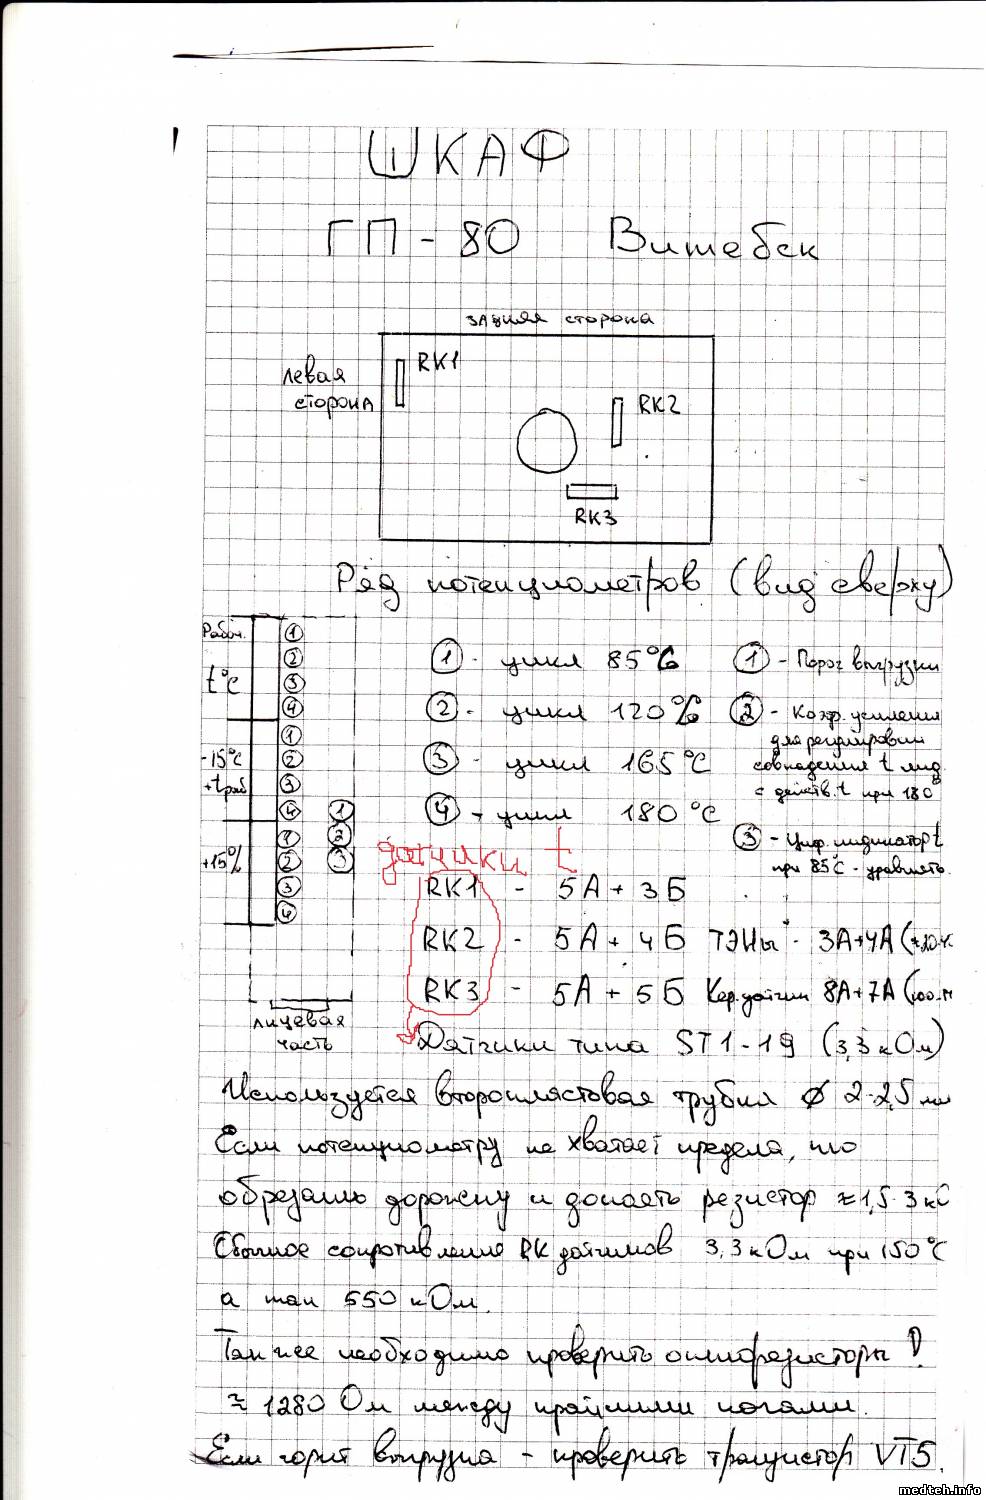 ШКАФ
ГП - 80 Витебск
задняя сторона
левая
сторона
RK1
RK2
RK3
Ряд потенциометров (вид сверху)
Рабоч.
t°C
-15°C
+tраб
+15%
1
2
3
4
1
2
3
4
1
2
3
4
1
2
3
лицевая
часть
1 - цикл 85°C
2 - цикл 120°C
3 - цикл 165°C
4 - цикл 180°C
1 - Порог выгрузки
2 - Коэф. усиления
для регулировки
совпадения t инд.
с действ. t при 180°
3 - Циф. индикатор t
при 85°C - уравнять.
датчики t
RK1 - 5А + 3Б
RK2 - 5А + 4Б ТЭНы - 3А+4А
RK3 - 5А + 5Б Кер.датчик 8А+7А
Датчики типа ST1-19 (3,3 кОм)
Используется второпластовая трубка ф 2-2,5 мм
Если потенциометру не хватает предела, то
обрезать дорожку и допаять резистор ≈1,5-3 кО
Обычное сопротивление RK датчиков 3,3 кОм при 150°C
а так 550 кОм.
Так же необходимо проверить опторезисторы!
≈ 1280 Ом между крайними ногами.
Если горит выгрузка - проверить транзистор VT5.
medteh.info